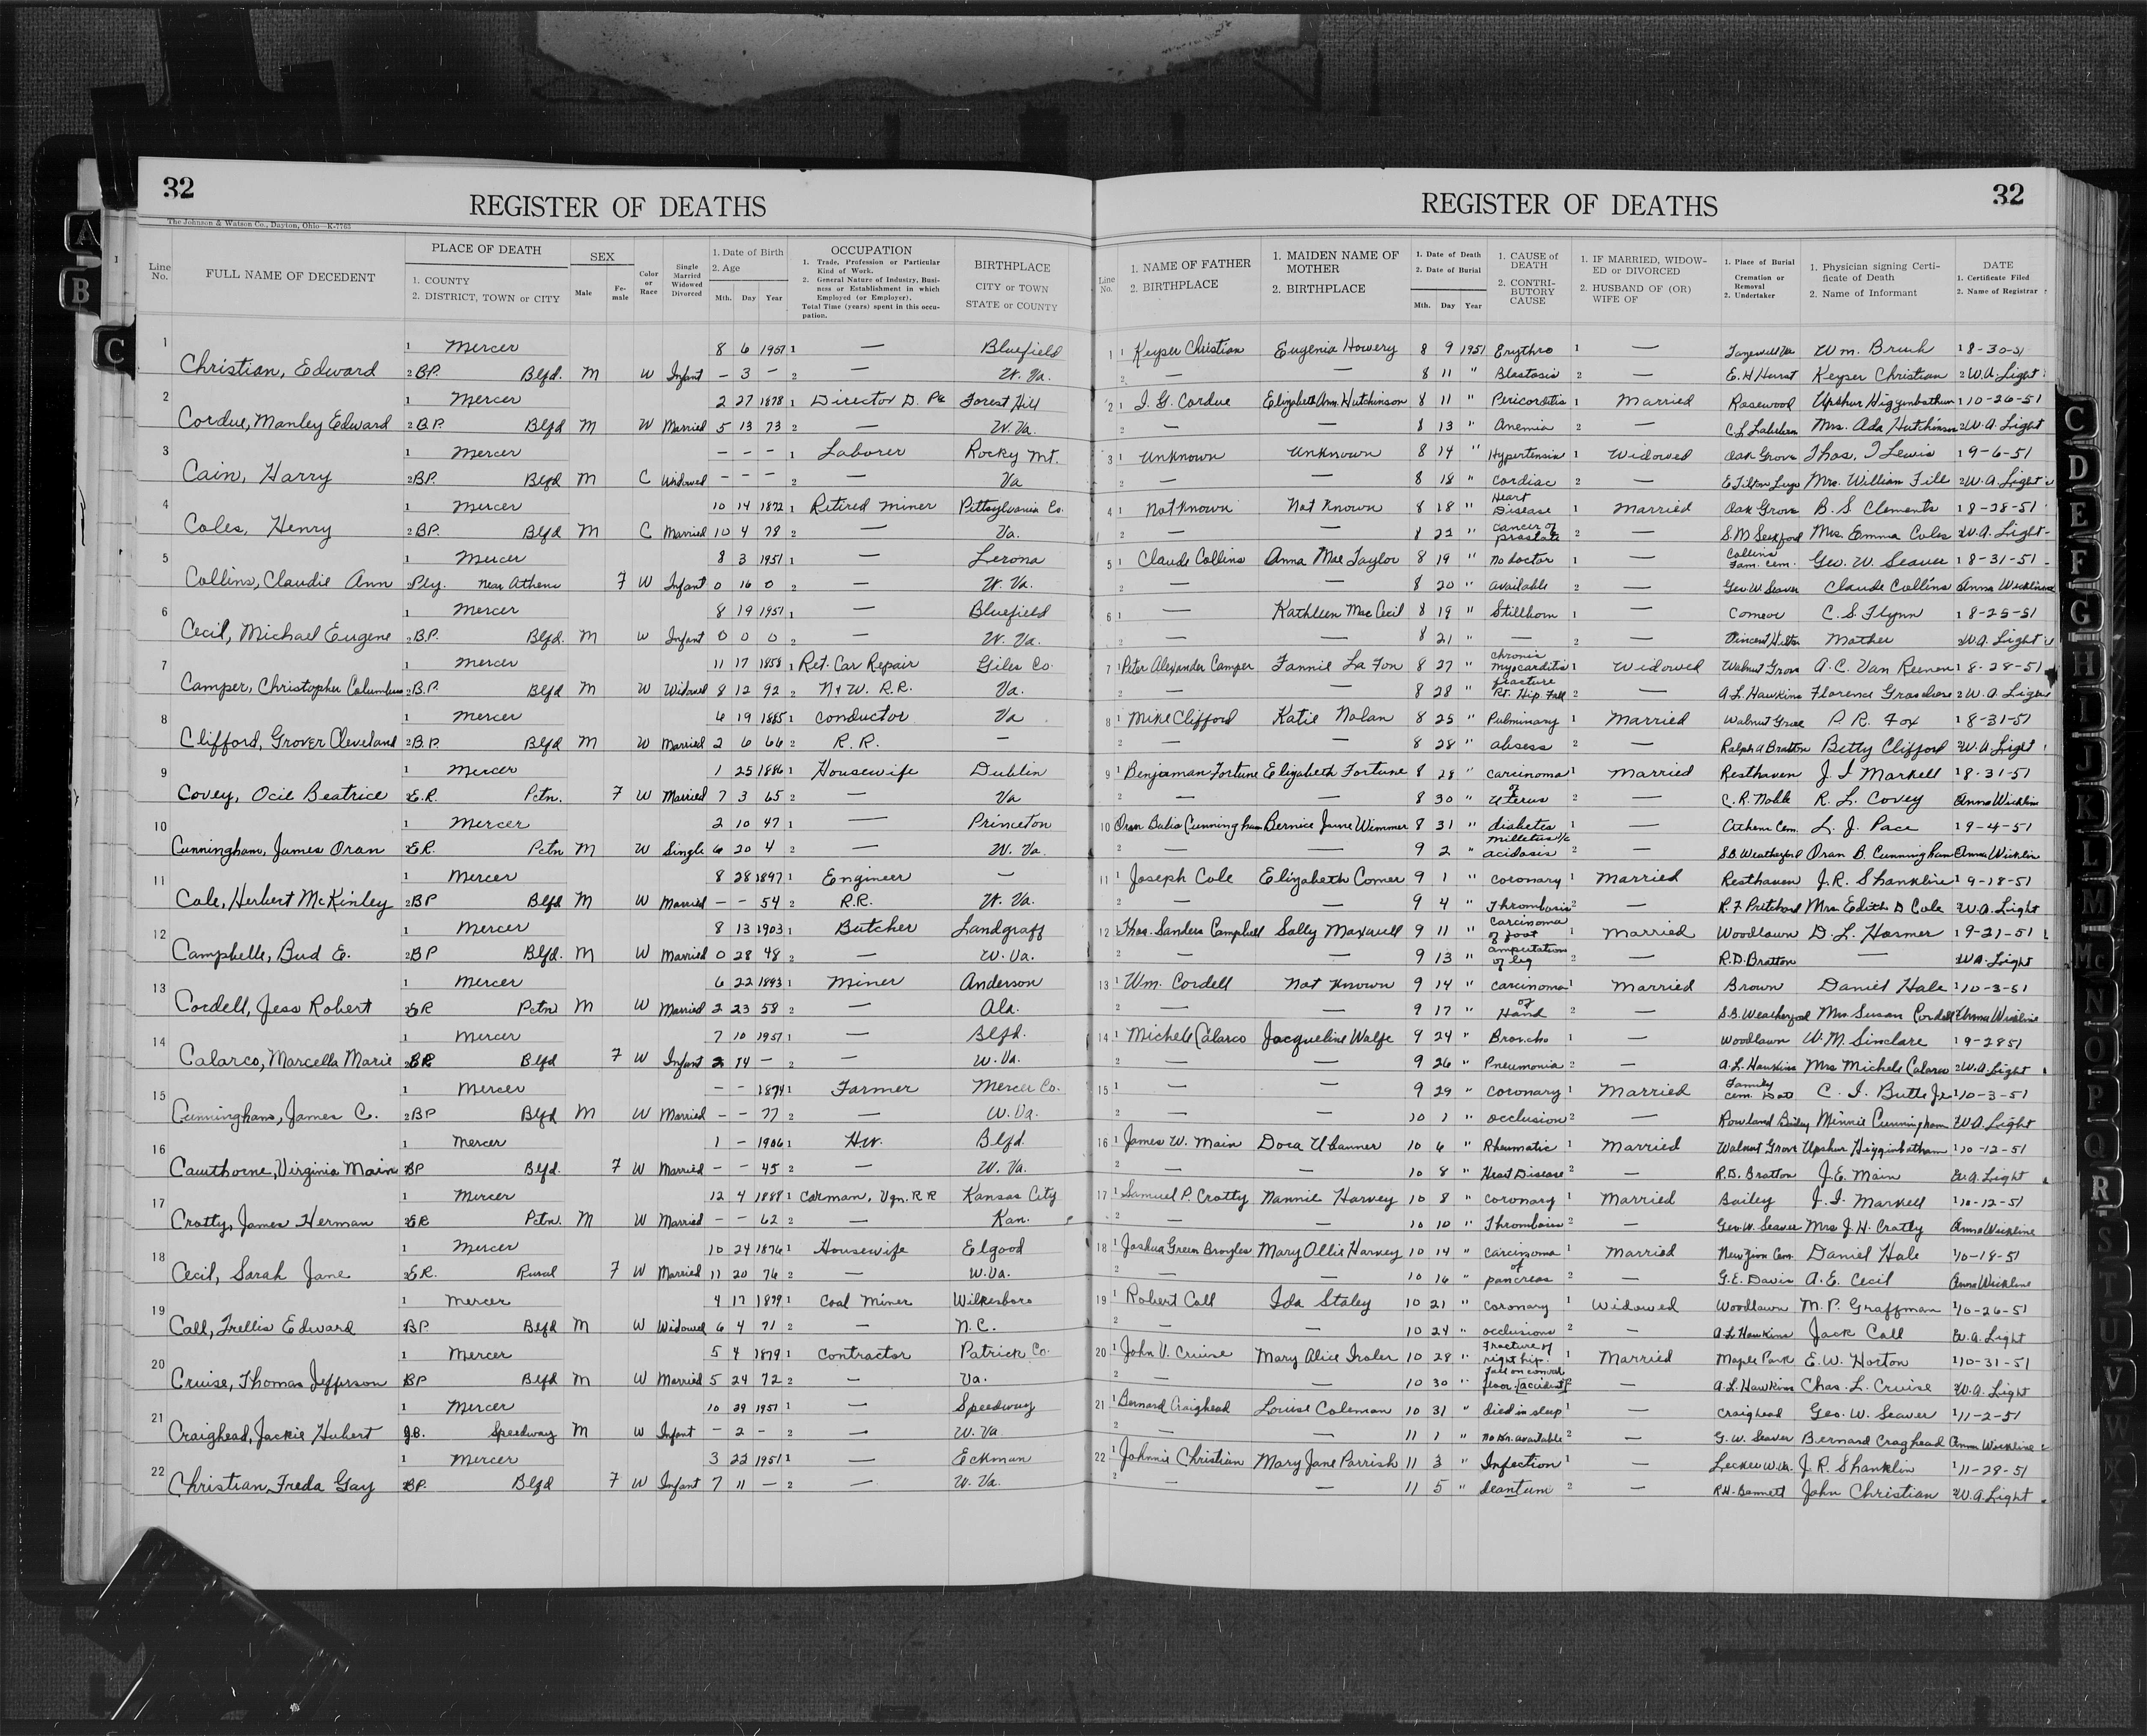 32
REGISTER OF DEATHS
The Johnson & Watson Co., Dayton, Ohio—K-7763
Line No. FULL NAME OF DECEDENT PLACE OF DEATH 1. COUNTY 2. DISTRICT, TOWN or CITY SEX Male Female Color or Race Single Married Widowed Divorced 1. Date of Birth 2. Age Mth. Day Year OCCUPATION 1. Trade, Profession or Particular Kind of Work. 2. General Nature of Industry, Business or Establishment in which Employed (or Employer). Total Time (years) spent in this occupation. BIRTHPLACE CITY or TOWN STATE or COUNTY
1 1 Mercer 8 6 1951 1 — Bluefield
Christian, Edward 2 B.P. Blfd. M W Infant – 3 – 2 — W. Va.
2 1 Mercer 2 27 1878 1 Director D. Forest Hill
Cordue, Manley Edward 2 B.P. Blfd M W Married 5 13 73 2 — W. Va.
3 1 Mercer – – – 1 Laborer Rocky Mt.
Cain, Harry 2 B.P. Blfd M C Widowed – – – 2 — Va
4 1 Mercer 10 14 1872 1 Retired miner Pittsylvania Co.
Coles, Henry 2 B.P. Blfd M C Married 10 4 78 2 — Va.
5 1 Mercer 8 3 1951 1 — Lerona
Collins, Claudie Ann 2 Ply. near Athens F W Infant 0 16 0 2 — W. Va.
6 1 Mercer 8 19 1951 1 — Bluefield
Cecil, Michael Eugene 2 B.P. Blfd. M W Infant 0 0 0 2 — W. Va.
7 1 Mercer 11 17 1858 1 Ret. Car Repair Giles Co.
Camper, Christopher Columbus 2 B.P. Blfd M W Widowed 8 12 92 2 N & W. R.R. Va.
8 1 Mercer 6 19 1885 1 conductor Va
Clifford, Grover Cleveland 2 B.P. Blfd M W Married 2 6 66 2 R. R. —
9 1 Mercer 1 25 1886 1 Housewife Dublin
Covey, Ocie Beatrice 2 E.R. Pctn. F W Married 7 3 65 2 — Va
10 1 Mercer 2 10 47 1 — Princeton
Cunningham, James Oran 2 E.R. Pctn M W Single 6 20 4 2 — W. Va.
11 1 Mercer 8 28 1897 1 Engineer —
Cole, Herbert McKinley 2 BP Blfd M W Married – – 54 2 R.R. W. Va.
12 1 Mercer 8 13 1903 1 Butcher Landgraff
Campbelle, Bud E. 2 BP Blfd. M W Married 0 28 48 2 — W. Va.
13 1 Mercer 6 22 1893 1 Miner Anderson
Cordell, Jess Robert 2 ER Pctn M W Married 2 23 58 2 — Ala.
14 1 Mercer 7 10 1951 1 — Blfd.
Calarco, Marcella Marie 2 BP Blfd F W Infant 2 14 – 2 — W. Va.
15 1 Mercer – – 1874 1 Farmer Mercer Co.
Cunningham, James C. 2 BP Blfd M W Married – – 77 2 — W. Va.
16 1 Mercer 1 – 1906 1 Hw. Blfd.
Cawthorne, Virginia Main BP Blfd. F W Married – – 45 2 — W. Va.
17 1 Mercer 12 4 1888 1 Carman, Vgn. R R Kansas City
Crotty, James Herman 2 ER Pctn. M W Married – – 62 2 — Kan.
18 1 Mercer 10 24 1876 1 Housewife Elgood
Cecil, Sarah Jane 2 E.R. Rural F W Married 11 20 76 2 — W. Va.
19 1 Mercer 4 17 1879 1 Coal Miner Wilkesboro
Call, Trellis Edward BP. Blfd M W Widowed 6 4 71 2 — N.C.
20 1 Mercer 5 4 1879 1 Contractor Patrick Co.
Cruise, Thomas Jefferson BP Blfd M W Married 5 24 72 2 — Va.
21 1 Mercer 10 29 1951 1 — Speedway
Craighead, Jackie Hubert J.C. Speedway M W Infant – 2 – 2 — W. Va
22 1 Mercer 3 22 1951 1 — Eckman
Christian, Freda Gay BP. Blfd F W Infant 7 11 – 2 — W. Va.
32
REGISTER OF DEATHS
Line No. 1. NAME OF FATHER 2. BIRTHPLACE 1. MAIDEN NAME OF MOTHER 2. BIRTHPLACE 1. Date of Death 2. Date of Burial Mth. Day Year 1. CAUSE of DEATH 2. CONTRIBUTORY CAUSE 1. IF MARRIED, WIDOWED or DIVORCED 2. HUSBAND OF (OR) WIFE OF 1. Place of Burial Cremation or Removal 2. Undertaker 1. Physician signing Certificate of Death 2. Name of Informant DATE 1. Certificate Filed 2. Name of Registrar
1 1 Keyser Christian Eugenia Howery 8 9 1951 Erythro 1 — Tazewell Va Wm. Bruch 1 8-30-51
2 — — 8 11 " Blastosis 2 — E. H Hurst Keyser Christian 2 W.A. Light
2 1 I. G. Cordue Elizabeth Ann. Hutchinson 8 11 " Pericorditis 1 Married Rosewood Upshur Higginbotham 1 10-26-51
2 — — 8 13 " Anemia 2 — Mrs. Ada Hutchinson 2 W.A. Light
3 1 Unknown Unknown 8 14 " Hypertensin 1 Widowed Oak Grove Thos. J Lewis 1 9-6-51
2 — — 8 18 " Cordiac 2 — Mrs. William Fill 2 W.A. Light
4 1 Not Known Not Known 8 18 " Heart Disease 1 Married Oak Grove B. S Clements 1 8-28-51
2 — — 8 22 " cancer of prostate 2 — Mrs. Emma Coles 2 W.A. Light
5 1 Claude Collins Anna Mae Taylor 8 19 " No doctor 1 — Collins Fam. Cem. Geo. W. Seaver 1 8-31-51
2 — — 8 20 " available 2 — Geo W Seaver Claude Collins Anna Wickline
6 1 — Kathleen Mae Cecil 8 19 " Stillborn 1 — Comeor C. S. Flynn 1 8-25-51
2 — — 8 21 " — 2 — Vincent Hilton Mother 2 W.A. Light
7 1 Peter Alexander Camper Fannie La Fon 8 27 " chronic myocarditis 1 Widowed Walnut Grove A. C. Van Reenen 1 8-28-51
2 — — 8 28 " fracture Rt. Hip. Fall 2 — A. L. Hawkins Florence 2 W. A. Light
8 1 Mike Clifford Katie Nolan 8 25 " Pulminary 1 Married Walnut Grove P. R. Fox 1 8-31-51
2 — — 8 28 " abscess 2 — Ralph A Bratton Betty Clifford 2 W.A. Light
9 1 Benjaman Fortune Elizabeth Fortune 8 28 " carcinoma 1 Married Resthaven J. I Markell 1 8-31-51
2 — — 8 30 " of Uterus 2 — C. R. Noble R. L. Covey Anna Wickline
10 Oran Bulis Cunningham Bernice June Wimmer 8 31 " diabetes 1 — Athens Cem. L. J. Pace 1 9-4-51
2 — — 9 2 " milletus acidosis 2 — S.B. Weatherford Oran B. Cunningham Anna Wickline
11 1 Joseph Cole Elizabeth Comer 9 1 " coronary 1 Married Resthaven J. R. Shanklin 1 9-18-51
2 — — 9 4 " Thrombosis 2 — R. F Pritchard Mrs. Edith D Cole W.A. Light
12 1 Thos. Sanders Campbell Sally Maxwell 9 11 " carcinoma of foot 1 Married Woodlawn D. L. Hosmer 1 9-21-51
2 — — 9 13 " amputation of leg 2 — R. D. Bratton — W A. Light
13 1 Wm. Cordell Not Known 9 14 " carcinoma 1 Married Brown Daniel Hale 1 10-3-51
2 — — 9 17 " of Hand 2 — S.B. Weatherford Mrs. Susan Cordell Anna Wickline
14 1 Michele Calarco Jacqueline Wolfe 9 24 " Broncho 1 — Woodlawn W. M. Sinclare 1 9-28 51
9 26 " Pneumonia 2 — A.L. Hawkins Mrs Michele Calarco 2 W.A. Light
15 1 — — 9 29 " coronary 1 Married Family Cem. C. I. Butte Jr 1 10-3-51
2 — — 10 1 " occlusion 2 — Rowland Bailey Minnie Cunningham W.A. Light
16 1 James W. Main Dora Ubanner 10 6 " Rheumatic 1 Married Walnut Grove Upshur Higginbotham 1 10-12-51
2 — — 10 8 " Heart Disease 2 — R.D. Bratton J. E. Main W.A. Light
17 1 Samuel P. Crotty Nannie Harvey 10 8 " coronary 1 Married Bailey J. I. Markell 1 10-12-51
2 — — 10 10 " Thrombosis 2 — Geo. W. Seaver Mrs J. H. Crotty Anna Wickline
18 1 Joshua Green Broyles Mary Ollie Harvey 10 14 " carcinoma 1 Married New Zion Cem. Daniel Hale 1 10-18-51
2 — — 10 16 " of pancreas 2 — G. E. Davis A. E. Cecil Anna Wickline
19 1 Robert Call Ida Staley 10 21 " coronary 1 Widowed Woodlawn M. P. Graffman 1 10-26-51
2 — — 10 24 " occlusions 2 — A. L. Hawkins Jack Call W. A. Light
20 1 John V. Cruise Mary Alice Iroler 10 28 " Fracture of right hip. 1 Married Maple Park E. W. Horton 1 10-31-51
2 — — 10 30 " fall on floor. (accident) 2 — A. L. Hawkins Chas. L. Cruise W.A. Light
21 1 Bernard Craighead Louise Coleman 10 31 " died in sleep 1 — Craighead Geo. W. Seaver 1 11-2-51
2 — — 11 1 " no Dr. available 2 — G. W. Seaver Bernard Craghead Anna Wickline
22 1 Johnnie Christian Mary Jane Parrish 11 3 " Infection 1 — Leckie W.Va. J. R. Shanklin 1 11-28-51
2 — — 11 5 " deantum 2 — R. H. Bennett John Christian W.A. Light
A
B
C
C
D
E
F
G
H
I
J
K
L
M
Mc
N
O
P
Q
R
S
T
U
V
W
X
Y
Z